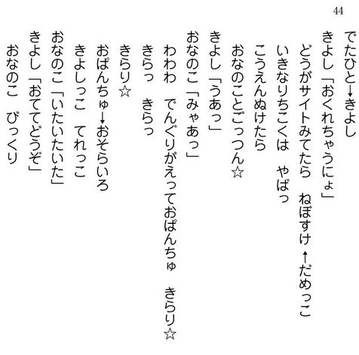 44
でたひと→きよし
きよし「おくれちゃうにょ」
どうがサイトみてたら　ねぼすけ←だめっこ
いきなりちこくは　やばっ
こうえんぬけたら
おなのことごっつん☆
きよし「うあっ」
おなのこ「みゃあっ」
わわわ　でんぐりがえっておぱんちゅ　きらり☆
きらっ　きらっ
きらり☆
おぱんちゅ→おそらいろ
きよしっこ　てれっこ
おなのこ「いたいたいた」
きよし「おててどうぞ」
おなのこ　びっくり